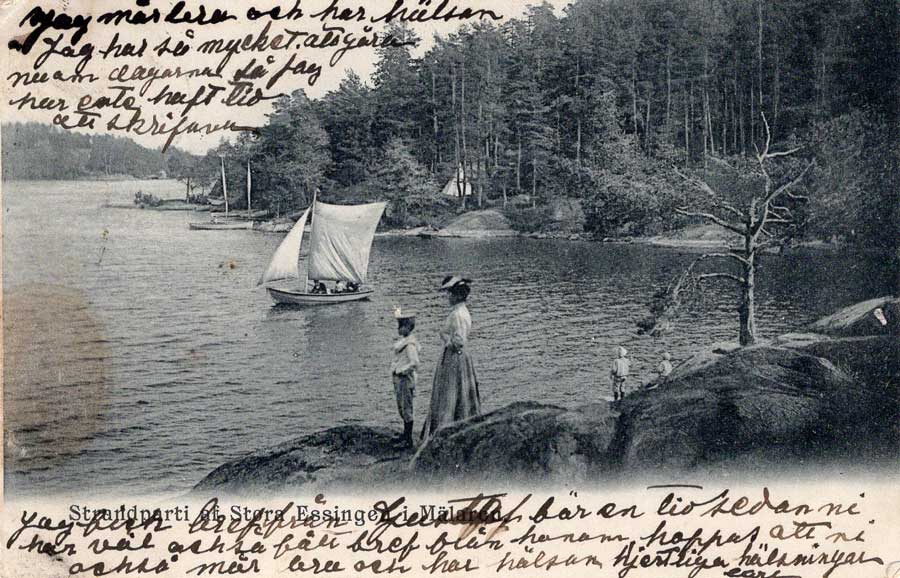 Jag mår bra och har hälsan
Jag har så mycket atgöra
nuam dagarna så Jag
har ente haft tid
att skrifava
Strandparti af Stora Essingen i Mälaren
Jag fick bref från här en tio sedan ni
har väl achså fått bref från honam hoppas att ni
achså mår bra och har hälsan hjertliga hälsningar